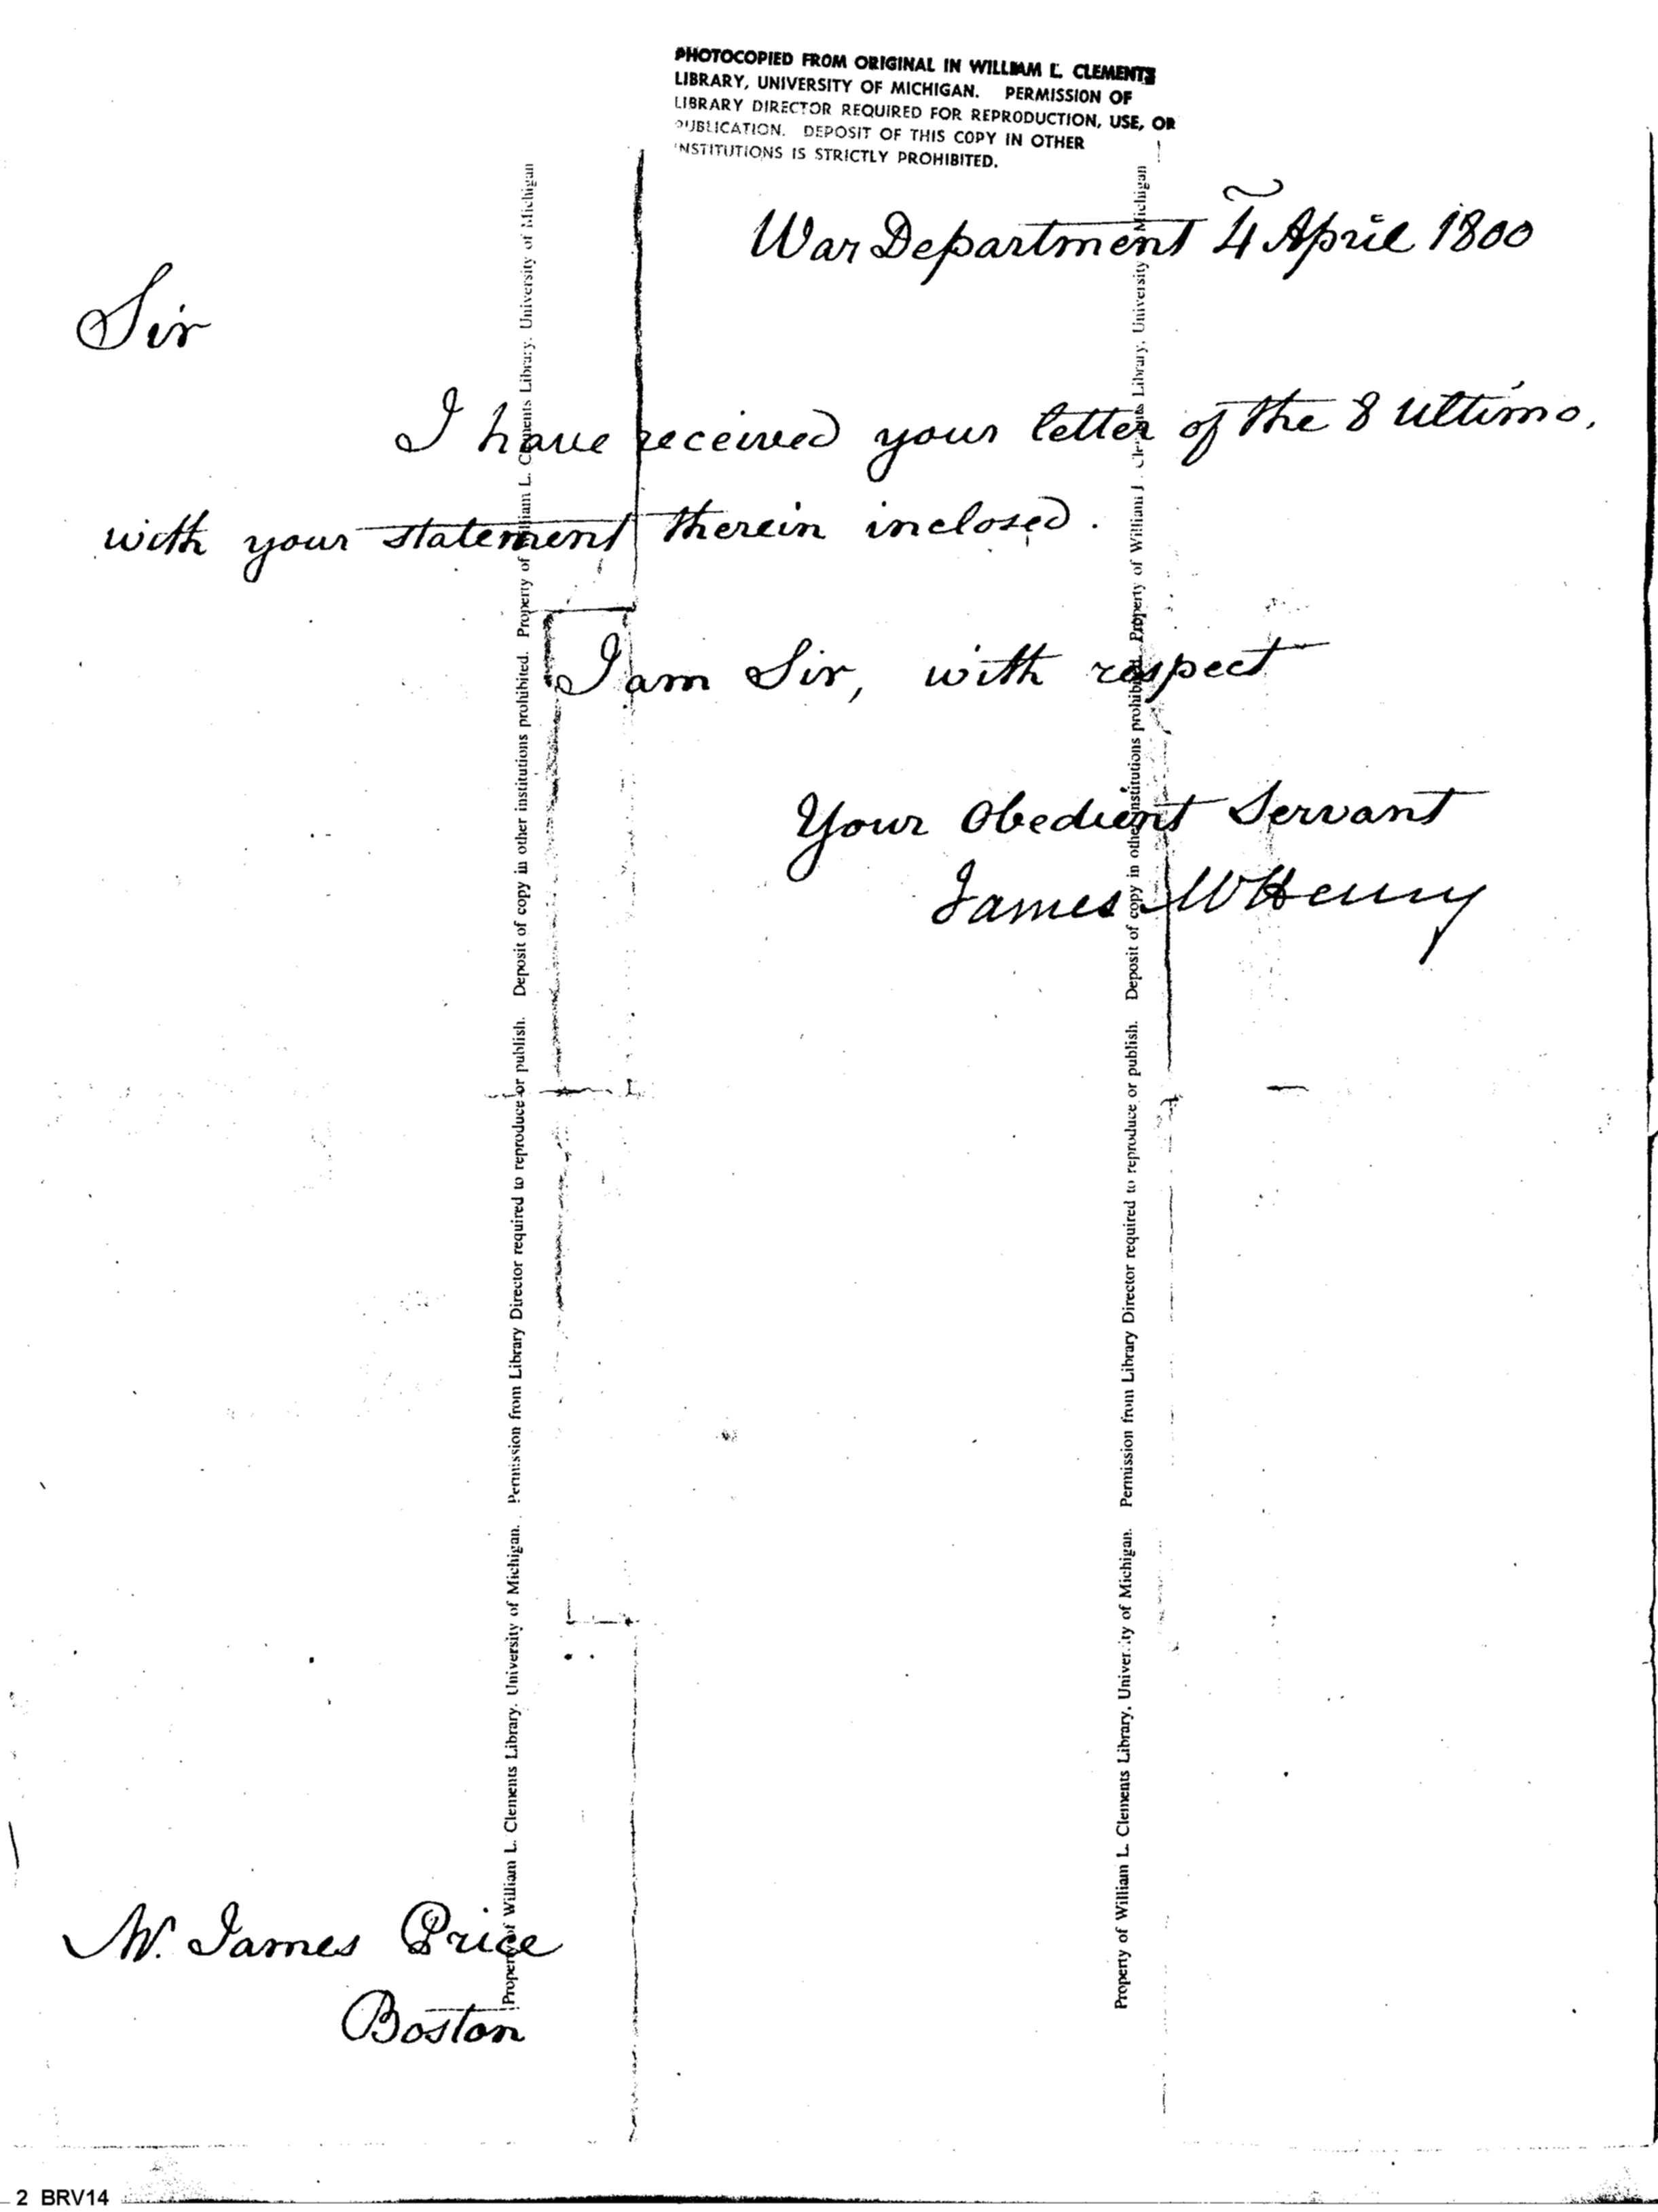 PHOTOCOPIED FROM ORIGINAL IN WILLIAM L. CLEMENTS
LIBRARY, UNIVERSITY OF MICHIGAN. PERMISSION OF
LIBRARY DIRECTOR REQUIRED FOR REPRODUCTION, USE, OR
PUBLICATION. DEPOSIT OF THIS COPY IN OTHER
INSTITUTIONS IS STRICTLY PROHIBITED.
War Department 4 April 1800
Sir
I have received your letter of the 8 ultimo,
with your statement therein inclosed.
I am Sir, with respect
Your Obedient Servant
James McHenry
Property of William L. Clements Library, University of Michigan. Permission from Library Director required to reproduce or publish. Deposit of copy in other institutions prohibited. Property of William L. Clements Library, University of Michigan
Property of William L. Clements Library, University of Michigan. Permission from Library Director required to reproduce or publish. Deposit of copy in other institutions prohibited. Property of William L. Clements Library, University of Michigan
M. James Price
Boston
2 BRV14